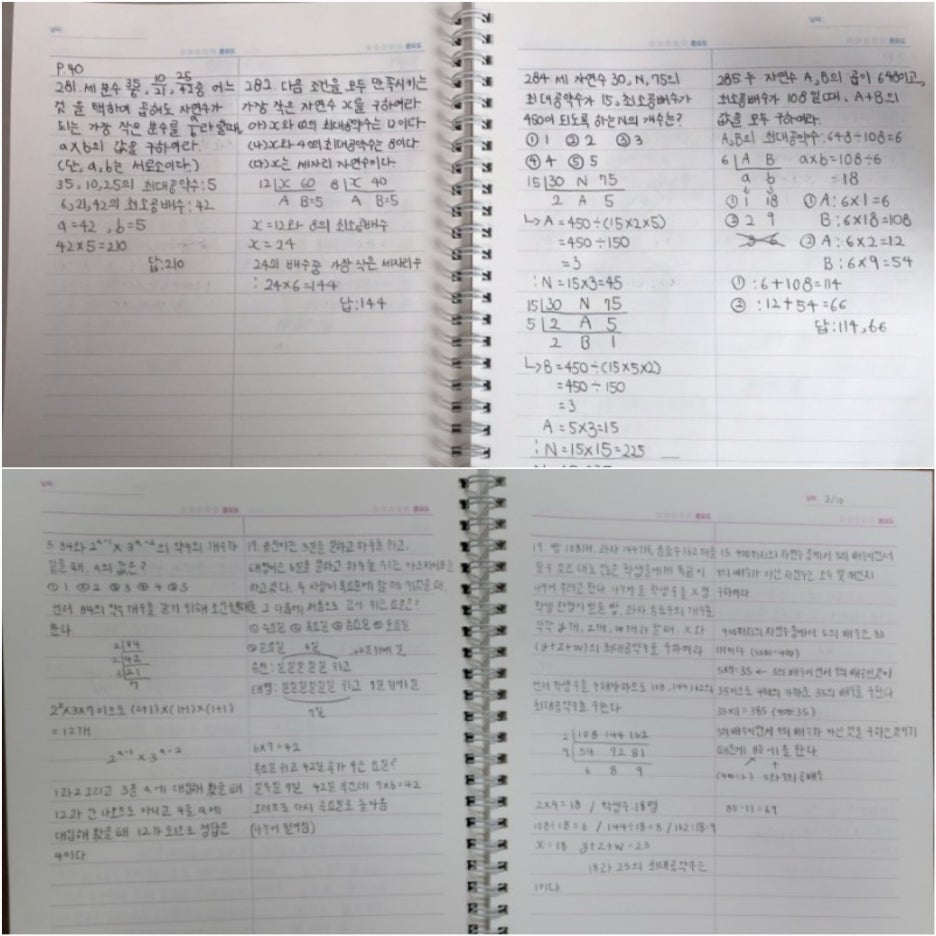 P.40
281. 세 분수 35/6, 10/21, 25/42 중 어느
것을 택하여 곱해도 자연수가
되는 가장 작은 분수를 a/b라 할 때,
a×b의 값을 구하여라.
(단, a, b는 서로소이다.)
35, 10, 25의 최대공약수 : 5
6, 21, 42의 최소공배수 : 42
a=42, b=5
42×5=210
답:210
282. 다음 조건을 모두 만족시키는
가장 작은 자연수 x를 구하여라
(가) x와 60의 최대공약수는 12이다
(나) x와 40의 최대공약수는 8이다
(다) x는 세자리 자연수이다.
12 x 60 8 x 40
A B=5 A B=5
x=12와 8의 최소공배수
x=24
24의 배수중 가장 작은 세자리수
: 24×6=144
답:144
284. 세 자연수 30, N, 75의
최대공약수가 15, 최소공배수가
450이 되도록 하는 N의 개수는?
① 1 ② 2 ③ 3
④ 4 ⑤ 5
15 30 N 75
2 A 5
↳ A=450÷(15×2×5)
=450÷150
=3
∴N=15×3=45
15 30 N 75
5 2 A 5
2 B 1
↳B=450÷(15×5×2)
=450÷150
=3
A=5×3=15
∴N=15×15=225
285. 두 자연수 A, B의 곱이 648이고,
최소공배수가 108일때, A+B의
값을 모두 구하여라.
A, B의 최대공약수: 648÷108=6
6 A B a×b=108÷6
a b =18
① 1 18 ① A:6×1=6
② 2 9 B:6×18=108
3 6 ② A:6×2=12
B:6×9=54
① :6+108=114
② :12+54=66
답:114, 66
5. 84와 2ᵃ⁻¹×3ᵃ⁻²의 약수의 개수가
같을 때, a의 값은?
① 1 ② 2 ③ 3 ④ 4 ⑤ 5
먼저 84의 약수 개수를 알기 위해
한다
2 84
2 42
3 21
7
2²×3×7 이므로 (2+1)×(1+1)×(1+1)
=12개
2ᵃ⁻¹×3ᵃ⁻²
1과 2 그리고 3을 a에 대입해 봤을 때
12가 안 나오므로 아니고 4를 a에
대입해 봤을 때 12가 나오므로 정답은
4이다
19. 유진이는 5일을 일하고 하루를 쉬고,
태형이는 6일을 일하고 하루를 쉬는
그 다음에 처음으로 같이 쉬는 요일은?
6일
7일
6×7=42
목요일 쉬고 42일 후가 쉬는 요일?
42일 7×6=42
그러므로 다시 목요일로 돌아옴
3/10
17. 빵 108개, 과자 144개, 음료수 162개를
학생 한명이 받은 빵, 과자 음료수의 개수를
각각 y개, z개, w개라 할 때, x와
(y+z+w)의 최대공약수를 구하여라
먼저 학생 수를 구해야하므로 108, 144, 162의
최대공약수를 구한다
2 108 144 162
9 54 72 81
6 8 9
2×9=18 / 학생수:18명
108÷18=6 / 144÷18=8 / 162÷18=9
x=18 y+z+w=23
18과 23의 최대공약수는
1이다
15. 400까지의 자연수 중에서 5의 배수이면서
7의 배수가 아닌 자연수는 모두 몇 개인지
구하여라.
400까지의 자연수 중에서 5의 배수는 80
개이다 (5×80=400)
5×7=35 ← 5의 배수이면서 7의 배수인것이
35×11=385
5의 배수이면서 7의 배수가 아닌 것을 구하는것이기
때문에 80-11을 한다
80-11=69